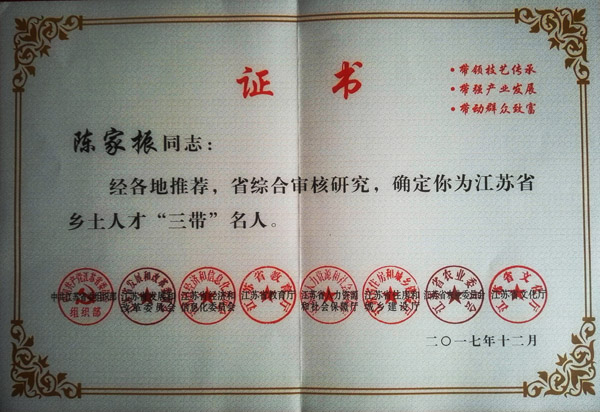 证书
·带领技艺传承
·带强产业发展
·带动群众致富
陈家振同志：
经各地推荐，省综合审核研究，确定你为江苏省
乡土人才“三带”名人。
中共江苏省委组织部
江苏省发展和改革委员会
江苏省经济和信息化委员会
江苏省教育厅
江苏省人力资源和社会保障厅
江苏省住房和城乡建设厅
江苏省农业委员会
江苏省文化厅
二〇一七年十二月